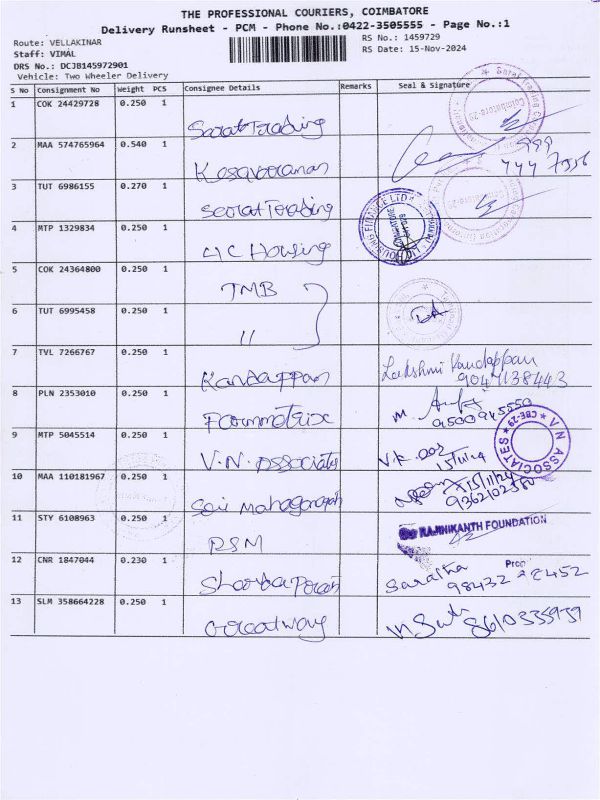 THE PROFESSIONAL COURIERS, COIMBATORE
Delivery Runsheet - PCM - Phone No.:0422-3505555 - Page No.:1
Route: VELLAKINAR
RS No.: 1459729
Staff: VIMAL
RS Date: 15-Nov-2024
DRS No.: DCJB145972901
Vehicle: Two Wheeler Delivery
S No Consignment No Weight PCS Consignee Details Remarks Seal & Signature
1 COK 24429728 0.250 1 Sarat Trading
2 MAA 574765964 0.540 1 Kesavaranan
3 TUT 6986155 0.270 1 Sarat Trading
4 MTP 1329834 0.250 1 LIC Housing
5 COK 24364800 0.250 1 TMB
6 TUT 6995458 0.250 1 "
7 TVL 7266767 0.250 1 Kandappan Lakshmi Kandappan
9047138443
8 PLN 2353010 0.250 1
9 MTP 5045514 0.250 1 V.N. Associates 15/11/24
V N ASSOCIATES CBE-29
10 MAA 110181967 0.250 1 Sai 15/11/24
11 STY 6108963 0.250 1 PSM RAJINIKANTH FOUNDATION
12 CNR 1847044 0.230 1 Saratha
13 SLM 358664228 0.250 1 Greatway 8610335939